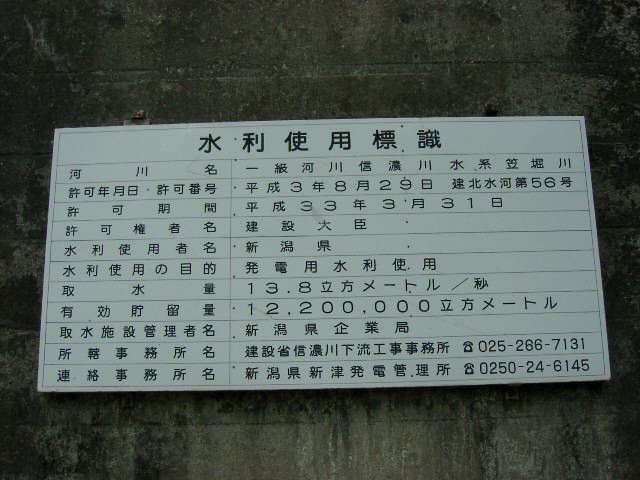 水利使用標識
河川名 一級河川信濃川水系笠堀川
許可年月日・許可番号 平成3年8月29日 建北水河第56号
許可期間 平成33年3月31日
許可権者名 建設大臣
水利使用者名 新潟県
水利使用の目的 発電用水利使用
取水量 13.8立方メートル／秒
有効貯留量 12,200,000立方メートル
取水施設管理者名 新潟県企業局
所轄事務所名 建設省信濃川下流工事事務所 ☎025-266-7131
連絡事務所名 新潟県新津発電管理所 ☎0250-24-6145